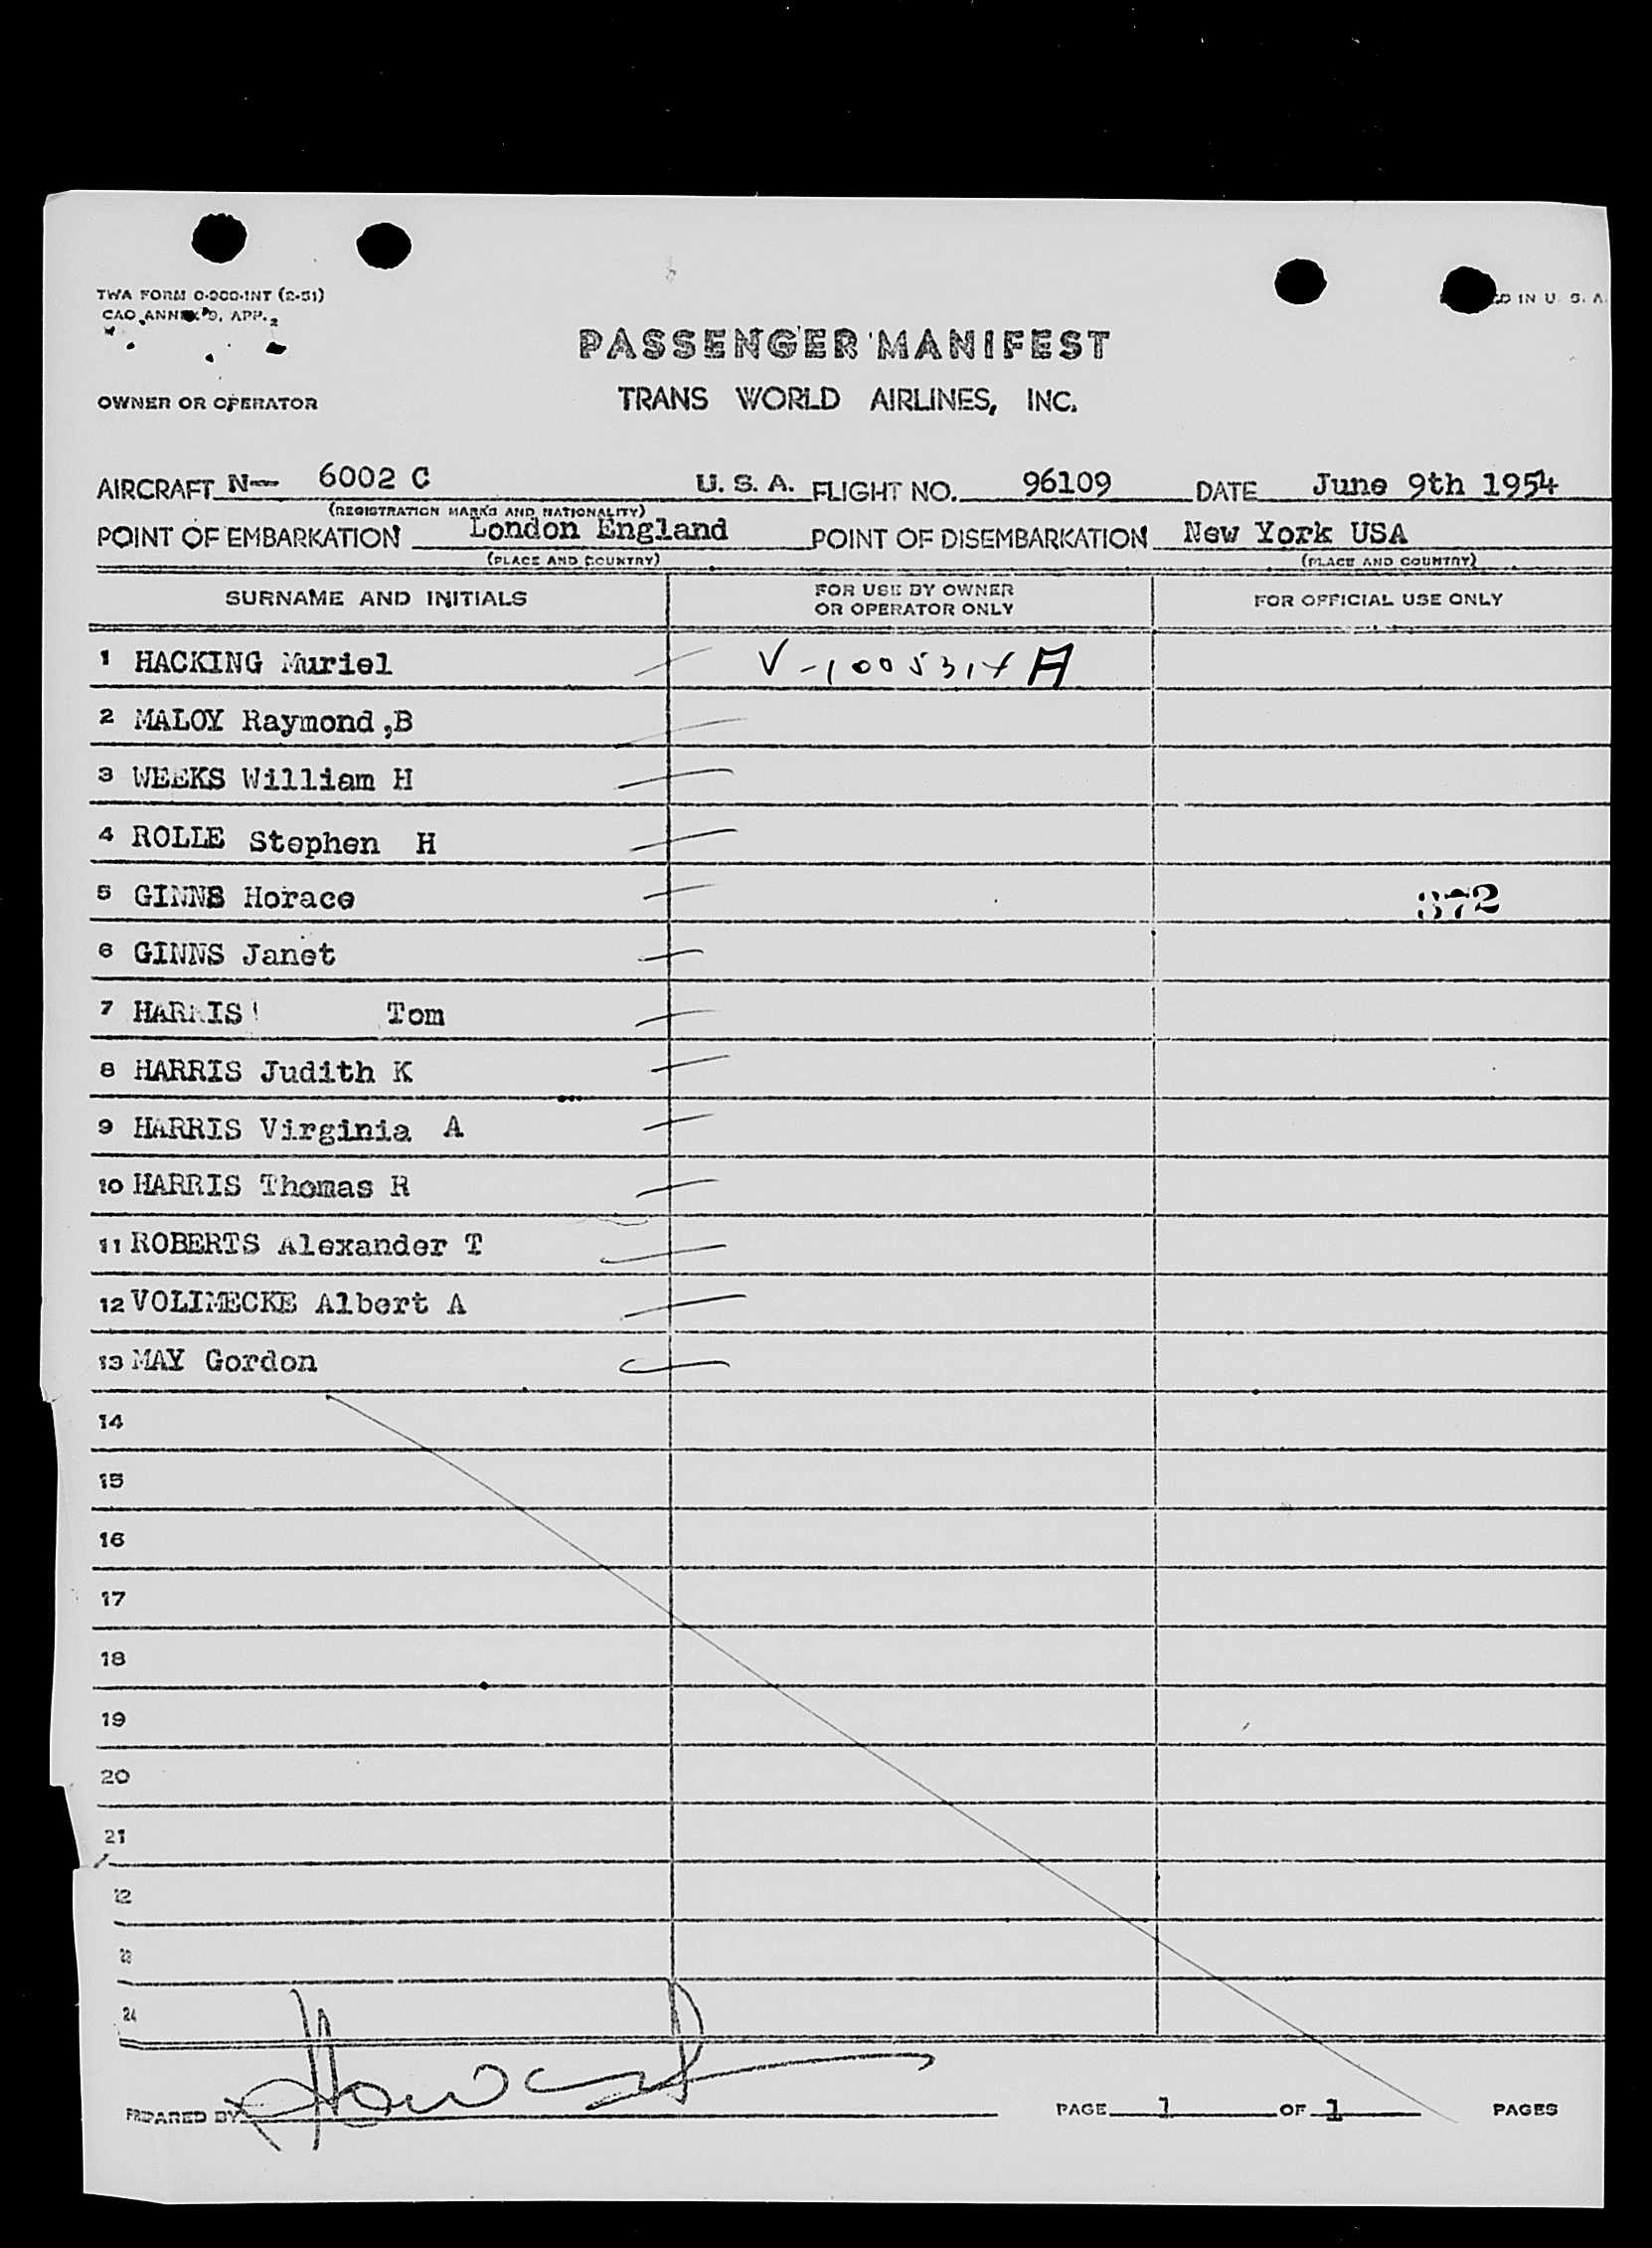 TWA FORM O-900-INT (2-51)
CAO ANNEX 9, APP. 2
ED IN U. S. A.
PASSENGER MANIFEST
OWNER OR OPERATOR
TRANS WORLD AIRLINES, INC.
AIRCRAFT N-- 6002 C U. S. A. FLIGHT NO. 96109 DATE June 9th 1954
(REGISTRATION MARKS AND NATIONALITY)
POINT OF EMBARKATION London England POINT OF DISEMBARKATION New York USA
(PLACE AND COUNTRY) (PLACE AND COUNTRY)
SURNAME AND INITIALS FOR USE BY OWNER OR OPERATOR ONLY FOR OFFICIAL USE ONLY
1 HACKING Muriel V-1005314 A
2 MALOY Raymond ,B
3 WEEKS William H
4 ROLLE Stephen H
5 GINNS Horace 372
6 GINNS Janet
7 HARRIS Tom
8 HARRIS Judith K
9 HARRIS Virginia A
10 HARRIS Thomas R
11 ROBERTS Alexander T
12 VOLIMECKE Albert A
13 MAY Gordon
14
15
16
17
18
19
20
21
22
23
24
PREPARED BY PAGE 1 OF 1 PAGES